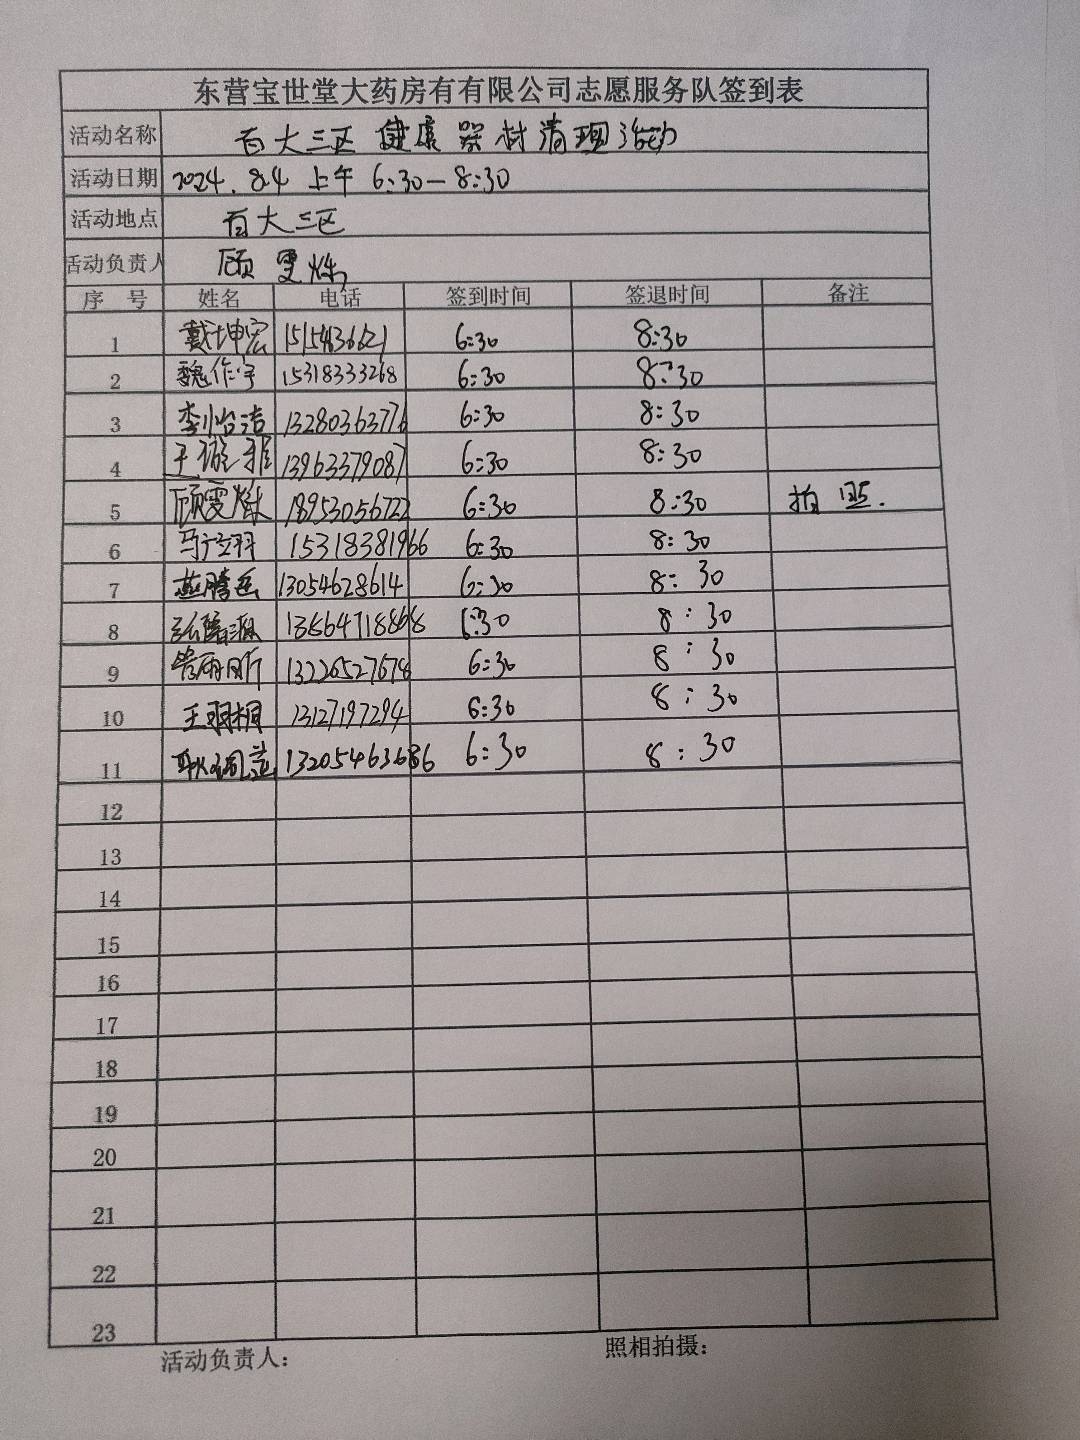 东营宝世堂大药房有有限公司志愿服务队签到表
活动名称 百大三区 健康器材清理活动
活动日期 2024.8.4 上午 6:30-8:30
活动地点 百大三区
活动负责人 顾雯
序 号 姓名 电话 签到时间 签退时间 备注
1 戴坤宏 6:30 8:30
2 魏作宇 15318333268 6:30 8:30
3 李怡洁 13280363776 6:30 8:30
4 王璇雅 13963379087 6:30 8:30
5 顾雯 18953056722 6:30 8:30 拍照.
6 15318381966 6:30 8:30
7 燕腾岳 13054628614 6:30 8:30
8 6:30 8:30
9 管雨昕 6:30 8:30
10 王羽桐 13127197294 6:30 8:30
11 13205463686 6:30 8:30
12
13
14
15
16
17
18
19
20
21
22
23
活动负责人： 照相拍摄：